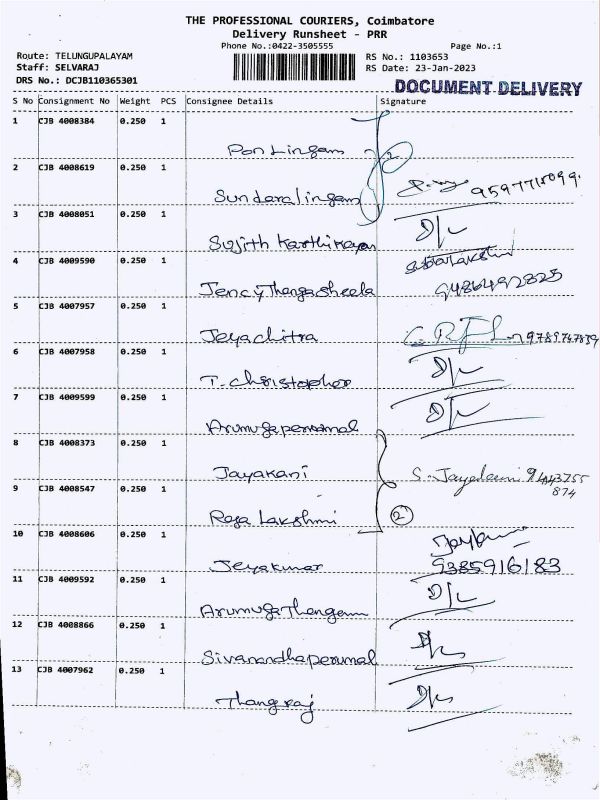 THE PROFESSIONAL COURIERS, Coimbatore
Delivery Runsheet - PRR
Phone No.:0422-3505555
Page No.:1
Route: TELUNGUPALAYAM
RS No.: 1103653
Staff: SELVARAJ
RS Date: 23-Jan-2023
DRS No.: DCJB110365301
DOCUMENT DELIVERY
S No Consignment No Weight PCS Consignee Details Signature
1 CJB 4008384 0.250 1
Pon Lingam 2
2 CJB 4008619 0.250 1
Sundaralingam 9597715099.
3 CJB 4008051 0.250 1
Sujith Karthikayan D/L
4 CJB 4009590 0.250 1
Jency Thangasheela 9486492825
5 CJB 4007957 0.250 1
Jeyachitra 9789747839
6 CJB 4007958 0.250 1
T. Christopher D/L
7 CJB 4009599 0.250 1
Arumugaperumal D/L
8 CJB 4008373 0.250 1
Jayakani 9443755
874
9 CJB 4008547 0.250 1
Raja Lakshmi 2
10 CJB 4008606 0.250 1
Jeyakumar 9385916183
11 CJB 4009592 0.250 1
ArumugaThangam D/L
12 CJB 4008866 0.250 1
Sivanandhaperumal
13 CJB 4007962 0.250 1
Thangraj